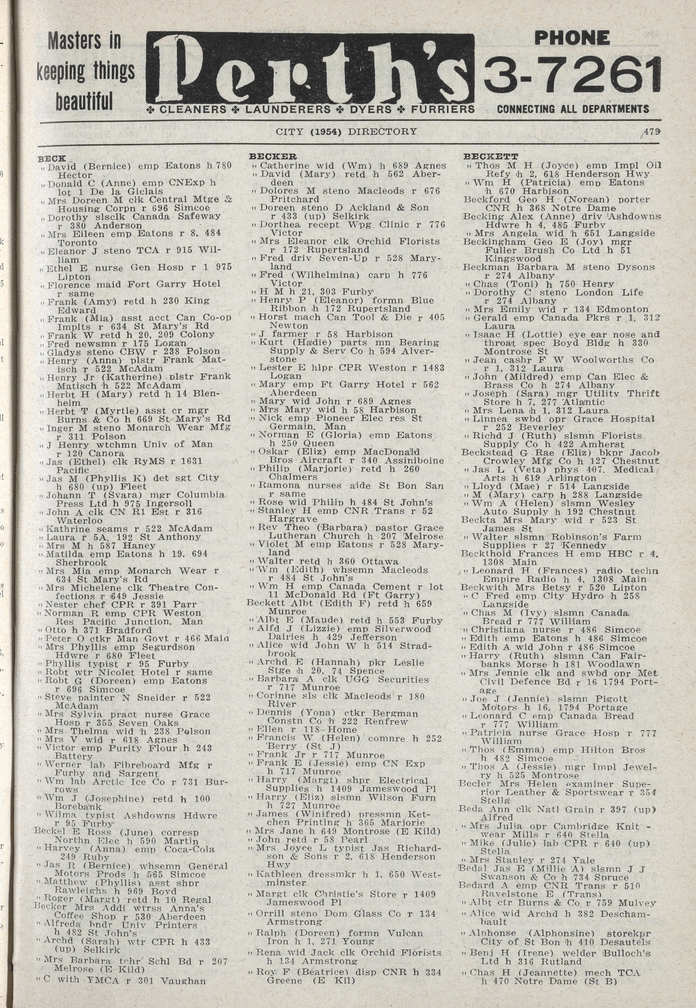 Masters in
keeping things
beautiful
Perth's
CLEANERS ✥ LAUNDERERS ✥ DYERS ✥ FURRIERS
PHONE
3-7261
CONNECTING ALL DEPARTMENTS
CITY (1954) DIRECTORY
479
BECK
" David (Bernice) emp Eatons h 780
Hector
" Donald C (Anne) emp CNExp h
lot 1 De la Giclais
" Mrs Doreen M clk Central Mtge &
Housing Corpn r 696 Simcoe
" Dorothy slsclk Canada Safeway
r 380 Anderson
" Mrs Eileen emp Eatons r 8, 484
Toronto
" Eleanor J steno TCA r 915 Wil-
liam
" Ethel E nurse Gen Hosp r 1 975
Lipton
" Florence maid Fort Garry Hotel
r same
" Frank (Amy) retd h 230 King
Edward
" Frank (Mia) asst acct Can Co-op
Implts r 634 St Mary's Rd
" Frank W retd h 20, 209 Colony
" Fred newsmn r 175 Logan
" Gladys steno CBW r 238 Polson
" Henry (Anna) plstr Frank Mat-
isch r 522 McAdam
" Henry Jr (Katherine) plstr Frank
Matisch h 522 McAdam
" Herbt H (Mary) retd h 14 Blen-
heim
" Herbt T (Myrtle) asst cr mgr
Burns & Co h 669 St-Mary's Rd
" Inger M steno Monarch Wear Mfg
r 311 Polson
" J Henry wtchmn Univ of Man
r 120 Canora
" Jas (Ethel) clk RyMS r 1631
Pacific
" Jas M (Phyllis K) det sgt City
h 680 (up) Fleet
" Johann T (Svara) mgr Columbia
Press Ltd h 975 Ingersoll
" John A clk CN Rl Est r 316
Waterloo
" Kathrine seams r 522 McAdam
" Laura r 5A, 192 St Anthony
" Mrs M h 587 Haney
" Matilda emp Eatons h 19, 694
Sherbrook
" Mrs Mia emp Monarch Wear r
634 St Mary's Rd
" Mrs Michelene clk Theatre Con-
fections r 649 Jessie
" Nester chef CPR r 391 Parr
" Norman R emp CPR Weston
Res Pacific Junction, Man
" Otto h 371 Bradford
" Peter O ctkr Man Govt r 466 Main
" Mrs Phyllis emp Segurdson
Hdwre r 680 Fleet
" Phyllis typist r 95 Furby
" Robt wtr Nicolet Hotel r same
" Robt G (Doreen) emp Eatons
r 696 Simcoe
" Steve painter N Sneider r 522
McAdam
" Mrs Sylvia pract nurse Grace
Hosp r 355 Seven Oaks
" Mrs Thelma wid h 238 Polson
" Mrs V wid r 618 Agnes
" Victor emp Purity Flour h 243
Battery
" Werner lab Fibreboard Mfg r
Furby and Sargent
" Wm lab Arctic Ice Co r 731 Bur-
rows
" Wm J (Josephine) retd h 100
Borebank
" Wilma typist Ashdowns Hdwre
r 95 Furby
Beckel E Ross (June) corresp
Northn Elec h 590 Martin
" Harvey (Anna) emp Coca-Cola
249 Ruby
" Jas R (Bernice) whsemn General
Motors Prods h 565 Simcoe
" Matthew (Phyllis) asst shpr
Rawleighs h 969 Boyd
" Roger (Margt) retd h 10 Regal
Becker Mrs Addi wtrss Anna's
Coffee Shop r 530 Aberdeen
" Alfreda bndr Univ Printers
h 482 St John's
" Archd (Sarah) wtr CPR h 433
(up) Selkirk
" Mrs Barbara tchr Schl Bd r 207
Melrose (E Kild)
" C with YMCA r 301 Vaughan
BECKER
" Catherine wid (Wm) h 689 Agnes
" David (Mary) retd h 562 Aber-
deen
" Dolores M steno Macleods r 676
Pritchard
" Doreen steno D Ackland & Son
r 433 (up) Selkirk
" Dorthea recept Wpg Clinic r 776
Victor
" Mrs Eleanor clk Orchid Florists
r 172 Rupertsland
" Fred driv Seven-Up r 528 Mary-
land
" Fred (Wilhelmina) carp h 776
Victor
" H M h 21, 303 Furby
" Henry P (Eleanor) formn Blue
Ribbon h 172 Rupertsland
" Horst mach Can Tool & Die r 405
Newton
" J farmer r 58 Harbison
" Kurt (Hadie) parts mn Bearing
Supply & Serv Co h 594 Alver-
stone
" Lester E hlpr CPR Weston r 1483
Logan
" Mary emp Ft Garry Hotel r 562
Aberdeen
" Mary wid John r 689 Agnes
" Mrs Mary wid h 58 Harbison
" Nick emp Pioneer Elec res St
Germain, Man
" Norman E (Gloria) emp Eatons
h 250 Queen
" Oskar (Eliz) emp MacDonald
Bros Aircraft r 340 Assiniboine
" Philip (Marjorie) retd h 260
Chalmers
" Ramona nurses aide St Bon San
r same
" Rose wid Philip h 484 St John's
" Stanley H emp CNR Trans r 52
Hargrave
" Rev Theo (Barbara) pastor Grace
Lutheran Church h 207 Melrose
" Violet M emp Eatons r 528 Mary-
land
" Walter retd h 360 Ottawa
" Wm (Edith) whsemn Macleods
r 484 St John's
" Wm H emp Canada Cement r lot
11 McDonald Rd (Ft Garry)
Beckett Albt (Edith F) retd h 659
Munroe
" Albt E (Maude) retd h 553 Furby
" Alfd J (Lizzie) emp Silverwood
Dairies h 429 Jefferson
" Alice wid John W h 514 Strad-
brook
" Archd E (Hannah) pkr Leslie
Stge h 20, 74 Spence
" Barbara A clk UGG Securities
r 717 Munroe
" Corinne sls clk Macleods r 180
River
" Dennis (Yona) ctkr Bergman
Constn Co h 222 Renfrew
" Ellen r 118 Home
" Francis W (Helen) comnre h 252
Berry (St J)
" Frank Jr r 717 Munroe
" Frank E (Jessie) emp CN Exp
h 717 Munroe
" Harry (Margt) shpr Electrical
Supplies h 1409 Jameswood Pl
" Harry (Eliz) slsmn Wilson Furn
h 727 Munroe
" James (Winifred) pressmn Ket-
chen Printing h 365 Marjorie
" Mrs Jane h 649 Montrose (E Kild)
" John retd r 58 Pearl
" Mrs Joyce L typist Jas Richard-
son & Sons r 2, 618 Henderson
Hwy
" Kathleen dressmkr h 1, 650 West-
minster
" Margt clk Christie's Store r 1409
Jameswood Pl
" Orrill steno Dom Glass Co r 134
Armstrong
" Ralph (Doreen) formn Vulcan
Iron h 1, 271 Young
" Rena wid Jack clk Orchid Florists
h 134 Armstrong
" Roy F (Beatrice) disp CNR h 334
Greene (E Kil)
BECKETT
" Thos M H (Joyce) emp Impl Oil
Refy h 2, 618 Henderson Hwy
" Wm H (Patricia) emp Eatons
h 670 Harbison
Beckford Geo H (Norean) porter
CNR h 368 Notre Dame
Becking Alex (Anne) driv Ashdowns
Hdwre h 4, 485 Furby
" Mrs Angela wid h 651 Langside
Beckingham Geo E (Joy) mgr
Fuller Brush Co Ltd h 51
Kingswood
Beckman Barbara M steno Dysons
r 274 Albany
" Chas (Toni) h 750 Henry
" Dorothy C steno London Life
r 274 Albany
" Mrs Emily wid r 134 Edmonton
" Gerald emp Canada Pkrs r 1, 312
Laura
" Isaac H (Lottie) eye ear nose and
throat spec Boyd Bldg h 330
Montrose St
" Jean cashr F W Woolworths Co
r 1, 312 Laura
" John (Mildred) emp Can Elec &
Brass Co h 274 Albany
" Joseph (Sara) mgr Utility Thrift
Store h 7, 277 Atlantic
" Mrs Lena h 1, 312 Laura
" Linnea swbd opr Grace Hospital
r 252 Beverley
" Richd J (Ruth) slsmn Florists
Supply Co h 422 Amherst
Beckstead G Rae (Eliz) bkpr Jacob
Crowley Mfg Co h 127 Chestnut
" Jas L (Veta) phys 407, Medical
Arts h 619 Arlington
" Lloyd (Mae) r 514 Langside
" M (Mary) carp h 288 Langside
" Wm A (Helen) slsmn Wesley
Auto Supply h 192 Chestnut
Beckta Mrs Mary wid r 523 St
James St
" Walter slsmn Robinson's Farm
Supplies r 27 Kennedy
Beckthold Frances H emp HBC r 4,
1308 Main
" Leonard H (Frances) radio techn
Empire Radio h 4, 1308 Main
Beckwith Mrs Betsy r 520 Lipton
" C Fred emp City Hydro h 258
Langside
" Chas M (Ivy) slsmn Canada
Bread r 777 William
" Christiana nurse r 486 Simcoe
" Edith emp Eatons h 486 Simcoe
" Edith A wid John r 486 Simcoe
" Harry (Ruth) slsmn Can Fair-
banks Morse h 181 Woodlawn
" Mrs Jennie clk and swbd opr Met
Civil Defence Bd r 16 1794 Port-
age
" Joe J (Jennie) slsmn Pigott
Motors h 16, 1794 Portage
" Leonard C emp Canada Bread
r 777 William
" Patricia nurse Grace Hosp r 777
William
" Thos (Emma) emp Hilton Bros
h 482 Simcoe
" Thos A (Jessie) mgr Impl Jewel-
ry h 525 Montrose
Becler Mrs Helen examiner Supe-
rior Leather & Sportswear r 354
Stella
Beda Ann clk Natl Grain r 397 (up)
Alfred
" Mrs Julia opr Cambridge Knit -
wear Mills r 640 Stella
" Mike (Julie) lab CPR r 640 (up)
Stella
" Mrs Stanley r 274 Yale
Bedal Jas E (Millie A) slsmn J J
Swanson & Co h 734 Spruce
Bedard A emp CNR Trans r 510
Ravelstone E (Trans)
" Albt ctr Burns & Co r 759 Mulvey
" Alice wid Archd h 382 Descham-
bault
" Alphonse (Alphonsine) storekpr
City of St Bon h 410 Desautels
" Benj H (Irene) welder Bulloch's
Ltd h 316 Rutland
" Chas H (Jeannette) mech TCA
h 470 Notre Dame (St B)